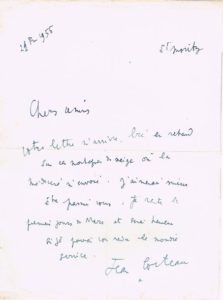 1955
St Moritz
Chers amis
Votre lettre m'arrive en retard
sur ces montagnes de neige où la
m'a envoyé. J'aimerais mieux
être parmi vous. Je reste
premiers jours de Mars et serai heureux
si je pouvais vous rendre le moindre
service.
Jean Cocteau